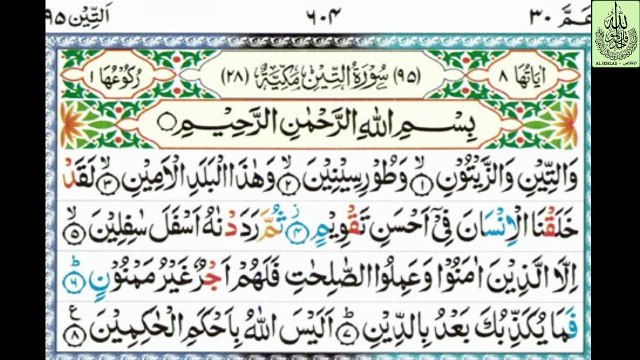 عَمَّ ٣٠
٦٠٤
اَلتِّيْن ٩٥
AL IKHLAS
اٰيَاتُهَا ٨
(٩٥) سُوْرَةُ التِّيْنِ مَكِّيَّةٌ (٢٨)
رُكُوْعُهَا ١
بِسْمِ اللهِ الرَّحْمٰنِ الرَّحِيْمِ
وَالتِّيْنِ وَالزَّيْتُوْنِ ۙ﴿١﴾ وَطُوْرِ سِيْنِيْنَ ۙ﴿٢﴾ وَهٰذَا الْبَلَدِ الْاَمِيْنِ ۙ﴿٣﴾ لَقَدْ
خَلَقْنَا الْاِنْسَانَ فِيْٓ اَحْسَنِ تَقْوِيْمٍ ۡ﴿٤﴾ ثُمَّ رَدَدْنٰهُ اَسْفَلَ سٰفِلِيْنَ ۙ﴿٥﴾
اِلَّا الَّذِيْنَ اٰمَنُوْا وَعَمِلُوا الصّٰلِحٰتِ فَلَهُمْ اَجْرٌ غَيْرُ مَمْنُوْنٍ ؕ﴿٦﴾
فَمَا يُكَذِّبُكَ بَعْدُ بِالدِّيْنِ ؕ﴿٧﴾ اَلَيْسَ اللهُ بِاَحْكَمِ الْحٰكِمِيْنَ ﴿٨﴾ ع